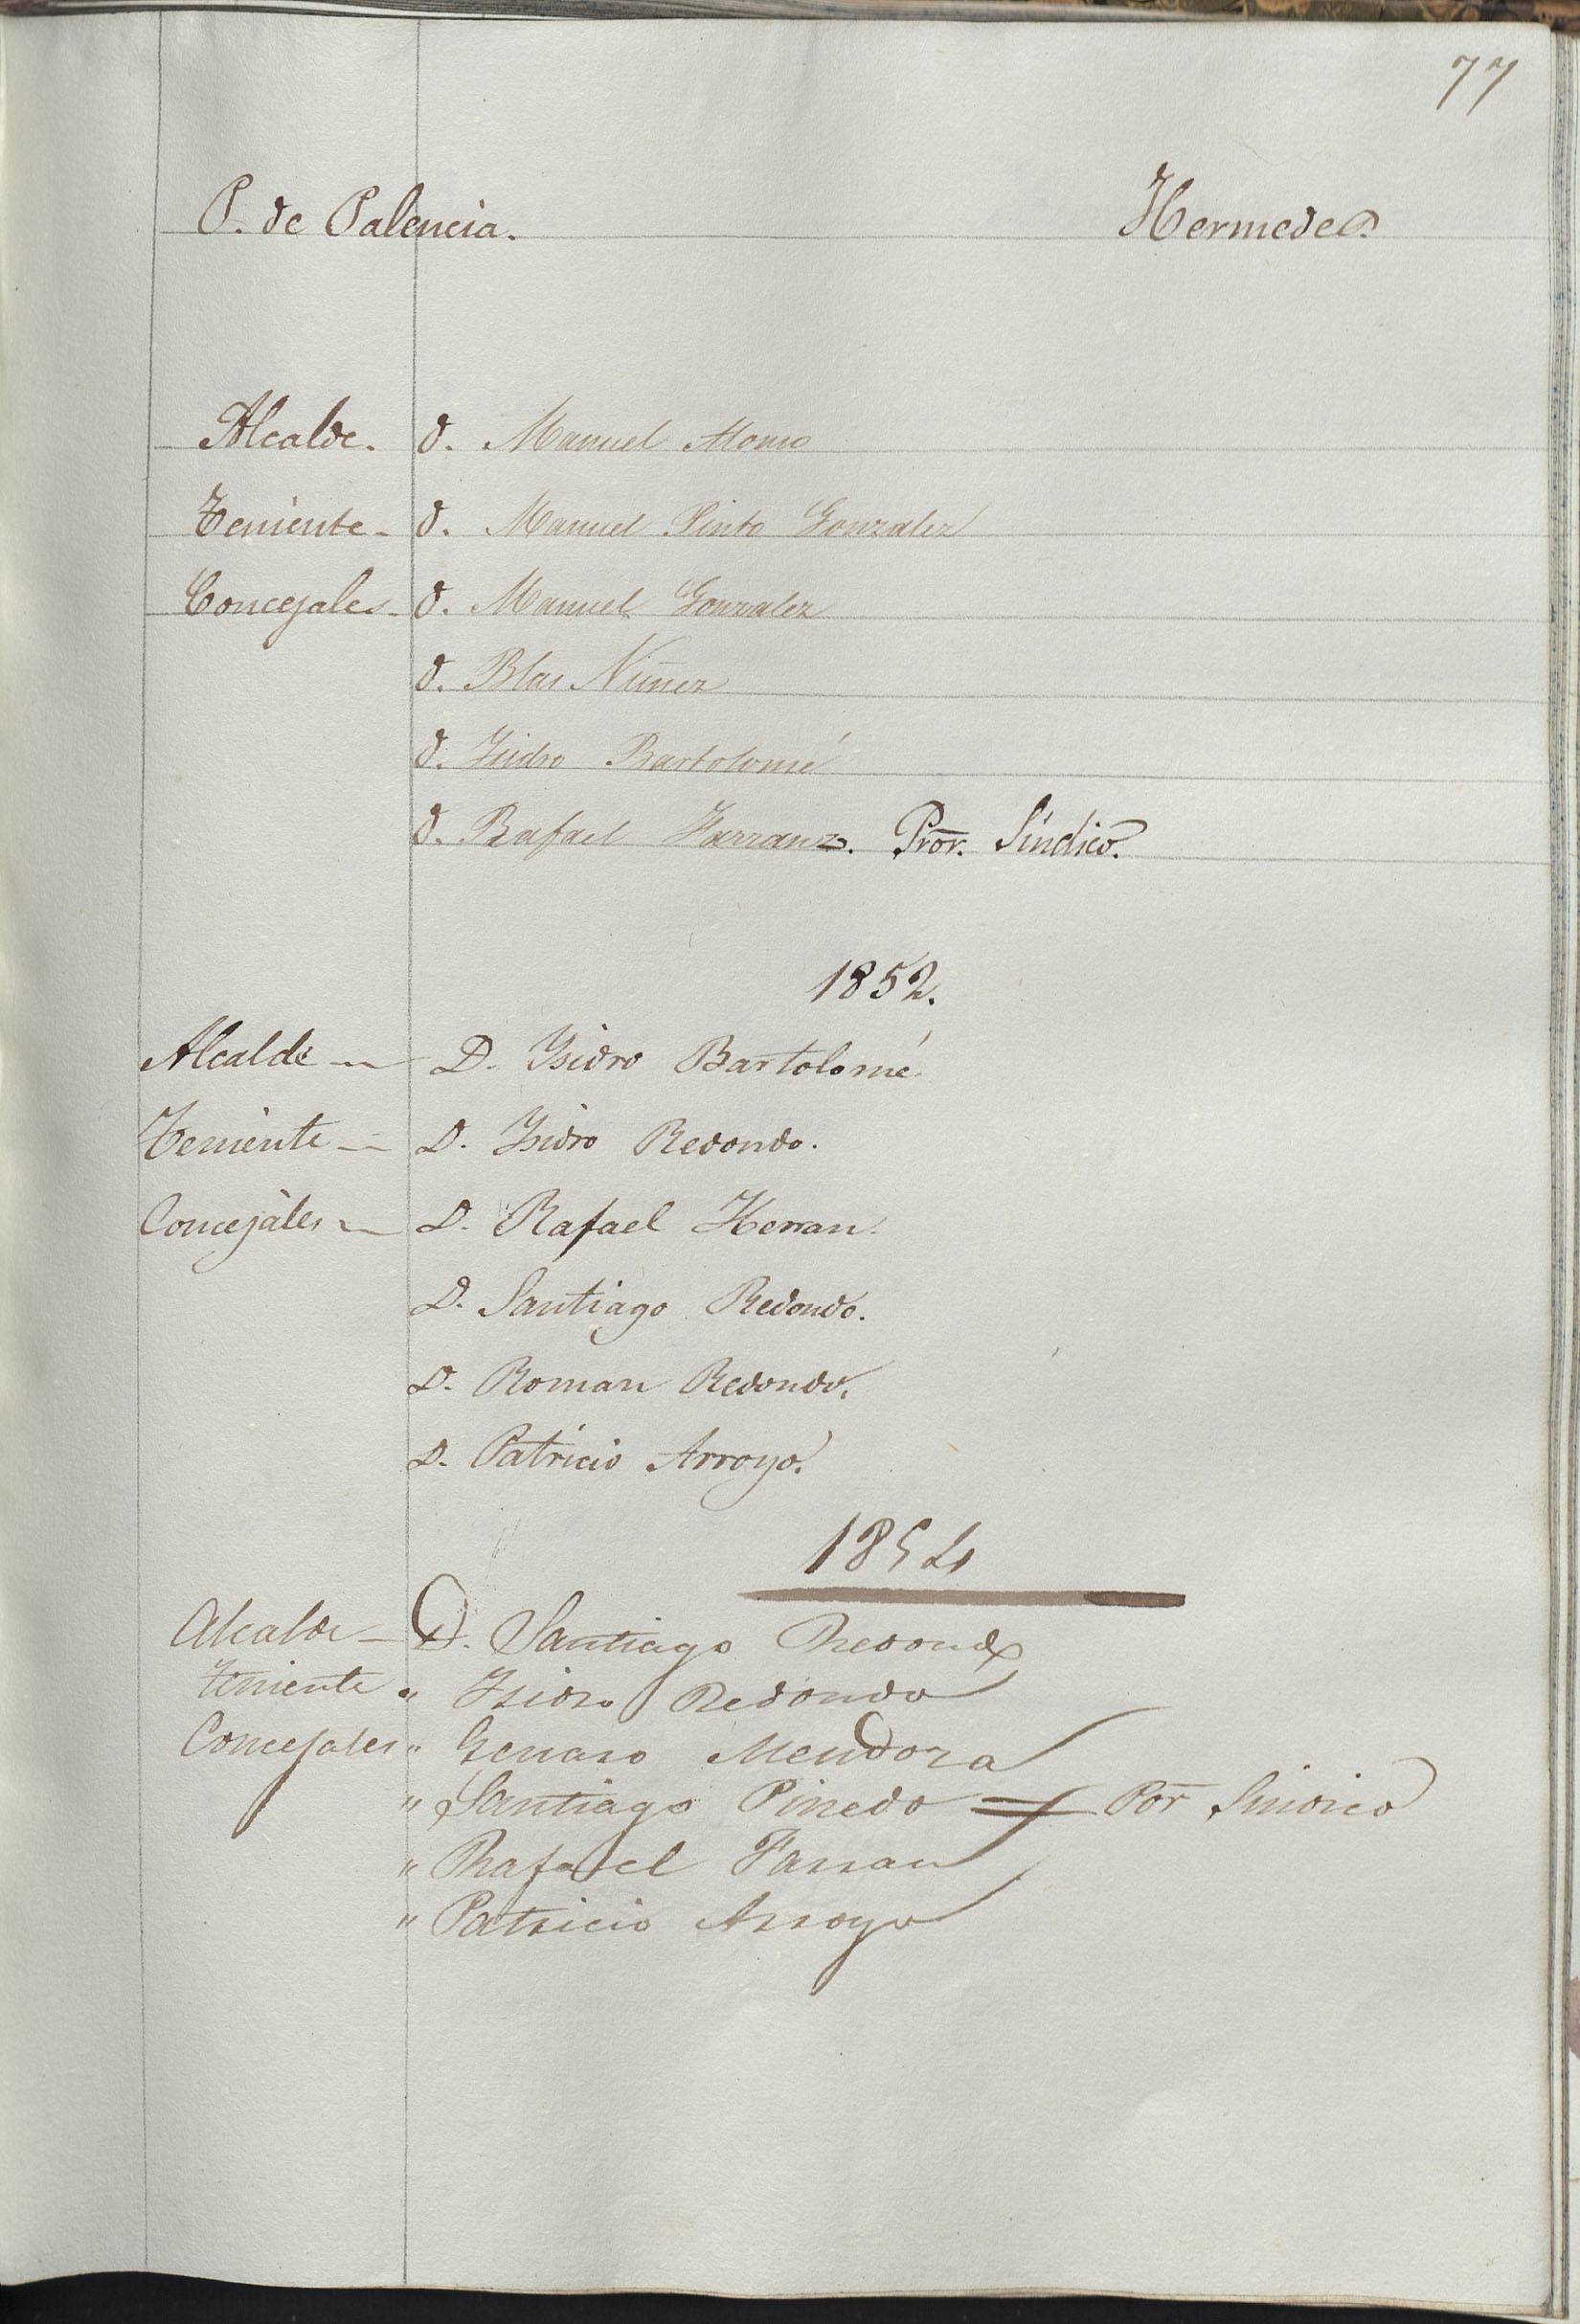 77
P. de Palencia. Hermedes.
Alcalde. D. Manuel Alonso
Teniente - D. Manuel Pinto Gonzalez
Concejales - D. Manuel Gonzalez
D. Blas Nuñez
D. Isidro Bartolomé
D. Rafael Farranz. Pror. Síndico.
1852.
Alcalde - D. Ysidro Bartolomé.
Teniente - D. Ysidro Redondo.
Concejales - D. Rafael Herran.
D. Santiago Redondo.
D. Roman Redondo.
D. Patricio Arroyo.
1854
Alcalde - D. Santiago Redondo
Teniente " Isidro Redondo
Concejales " Genaro Mendoza
" Santiago Pinedo = Por Sindico
" Rafael Farran
" Patricio Arroyo